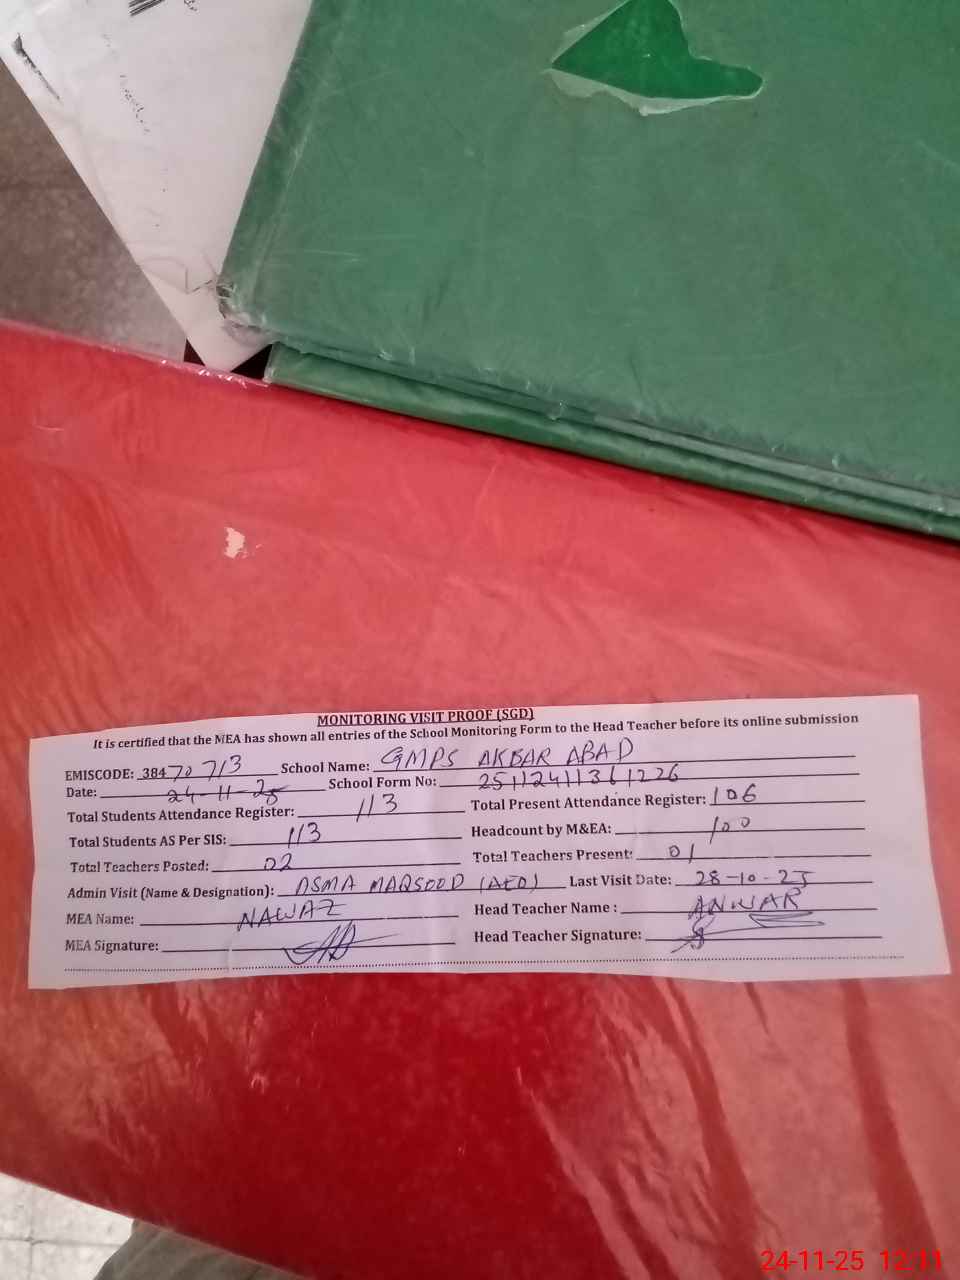 MONITORING VISIT PROOF (SGD)
It is certified that the MEA has shown all entries of the School Monitoring Form to the Head Teacher before its online submission
EMISCODE: 38470713 School Name: GMPS AKBAR ABAD
Date: 24-11-25 School Form No: 25112411361226
Total Students Attendance Register: 113 Total Present Attendance Register: 106
Total Students AS Per SIS: 113 Headcount by M&EA: 100
Total Teachers Posted: 02 Total Teachers Present: 01
Admin Visit (Name & Designation): ASMA MAQSOOD (AEO) Last Visit Date: 28-10-25
MEA Name: NAWAZ Head Teacher Name : ANWAR
MEA Signature: Head Teacher Signature:
24-11-25 12:11